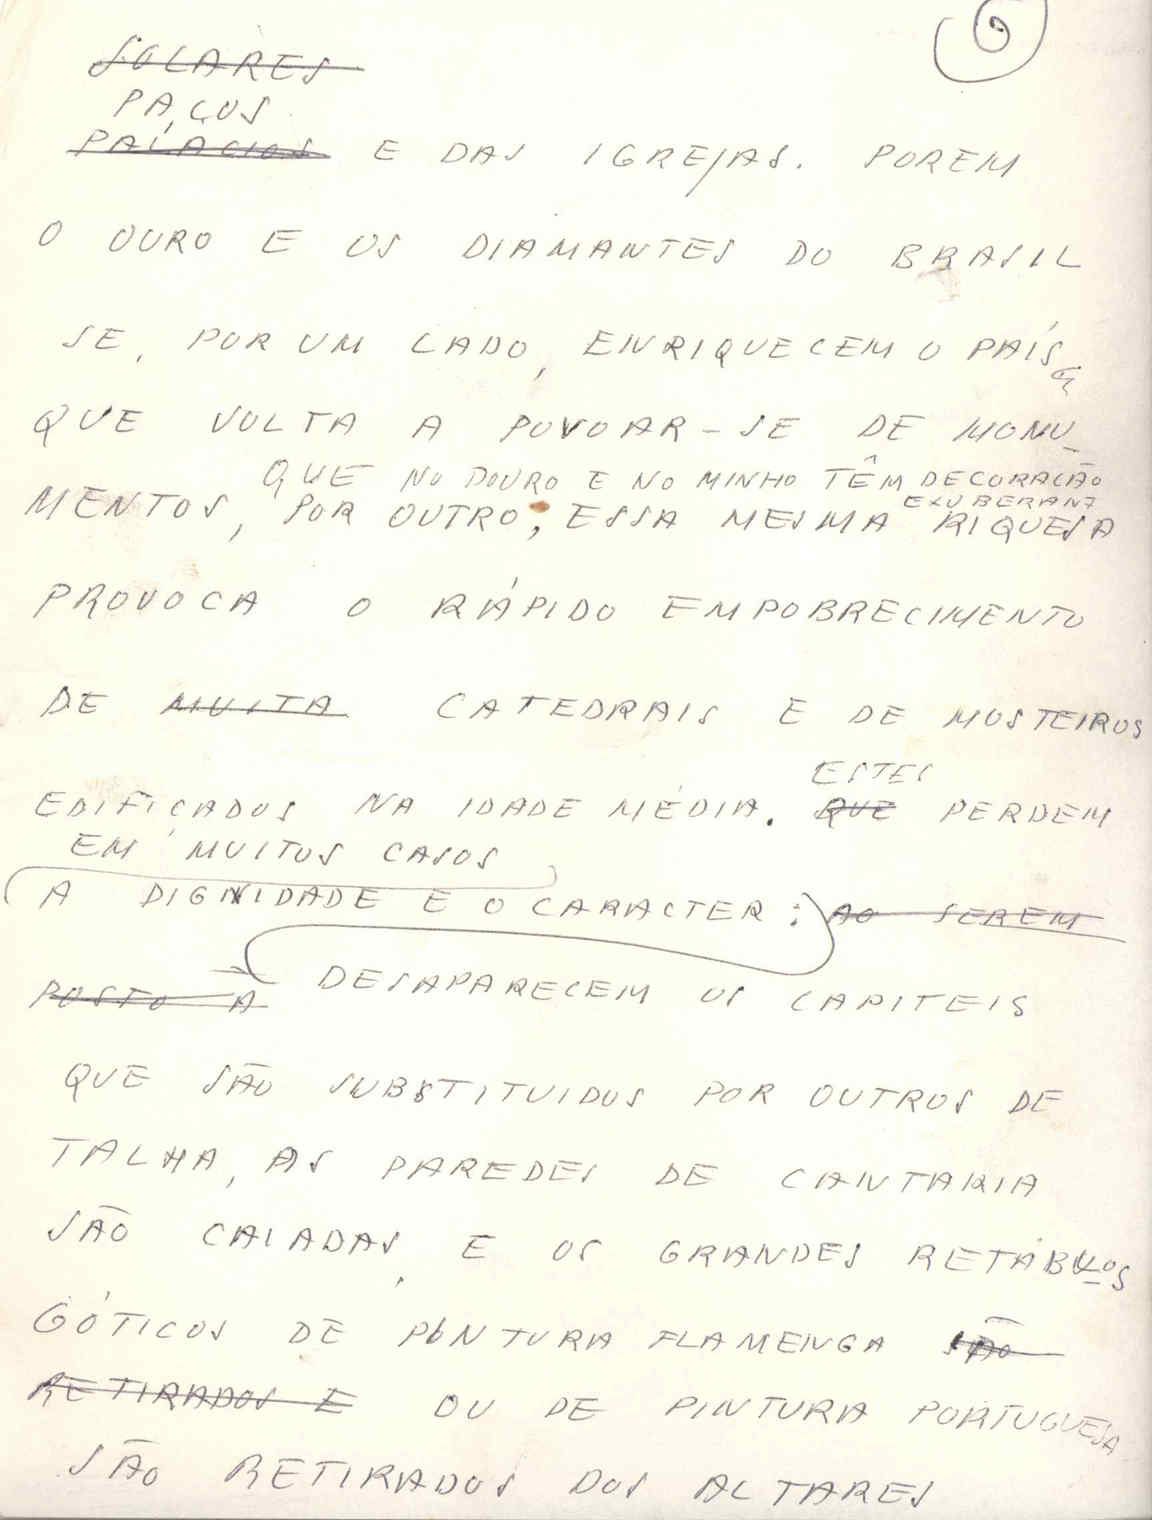 SOLARES
PAÇOS
PALACIOS E DAS IGREJAS. POREM
O OURO E OS DIAMANTES DO BRASIL
SE, POR UM LADO, ENRIQUECEM O PAÍS
QUE VOLTA A POVOAR-SE DE MONU-
QUE NO DOURO E NO MINHO TÊM DECORAÇÃO
EXUBERANT
MENTOS, POR OUTRO, ESSA MESMA RIQUESA
PROVOCA O RÁPIDO EMPOBRECIMENTO
DE MUITA CATEDRAIS E DE MOSTEIROS
ESTES
EDIFICADOS NA IDADE MÉDIA. QUE PERDEM
EM MUITOS CASOS
A DIGNIDADE E O CARACTER: AO SEREM
POSTO A DESAPARECEM OS CAPITEIS
QUE SÃO SUBSTITUIDOS POR OUTROS DE
TALHA, AS PAREDES DE CANTARIA
SÃO CAIADAS, E OS GRANDES RETÁBULOS
GÓTICOS DE PINTURA FLAMENGA SÃO
RETIRADOS E OU DE PINTURA PORTUGUESA
SÃO RETIRADOS DOS ALTARES